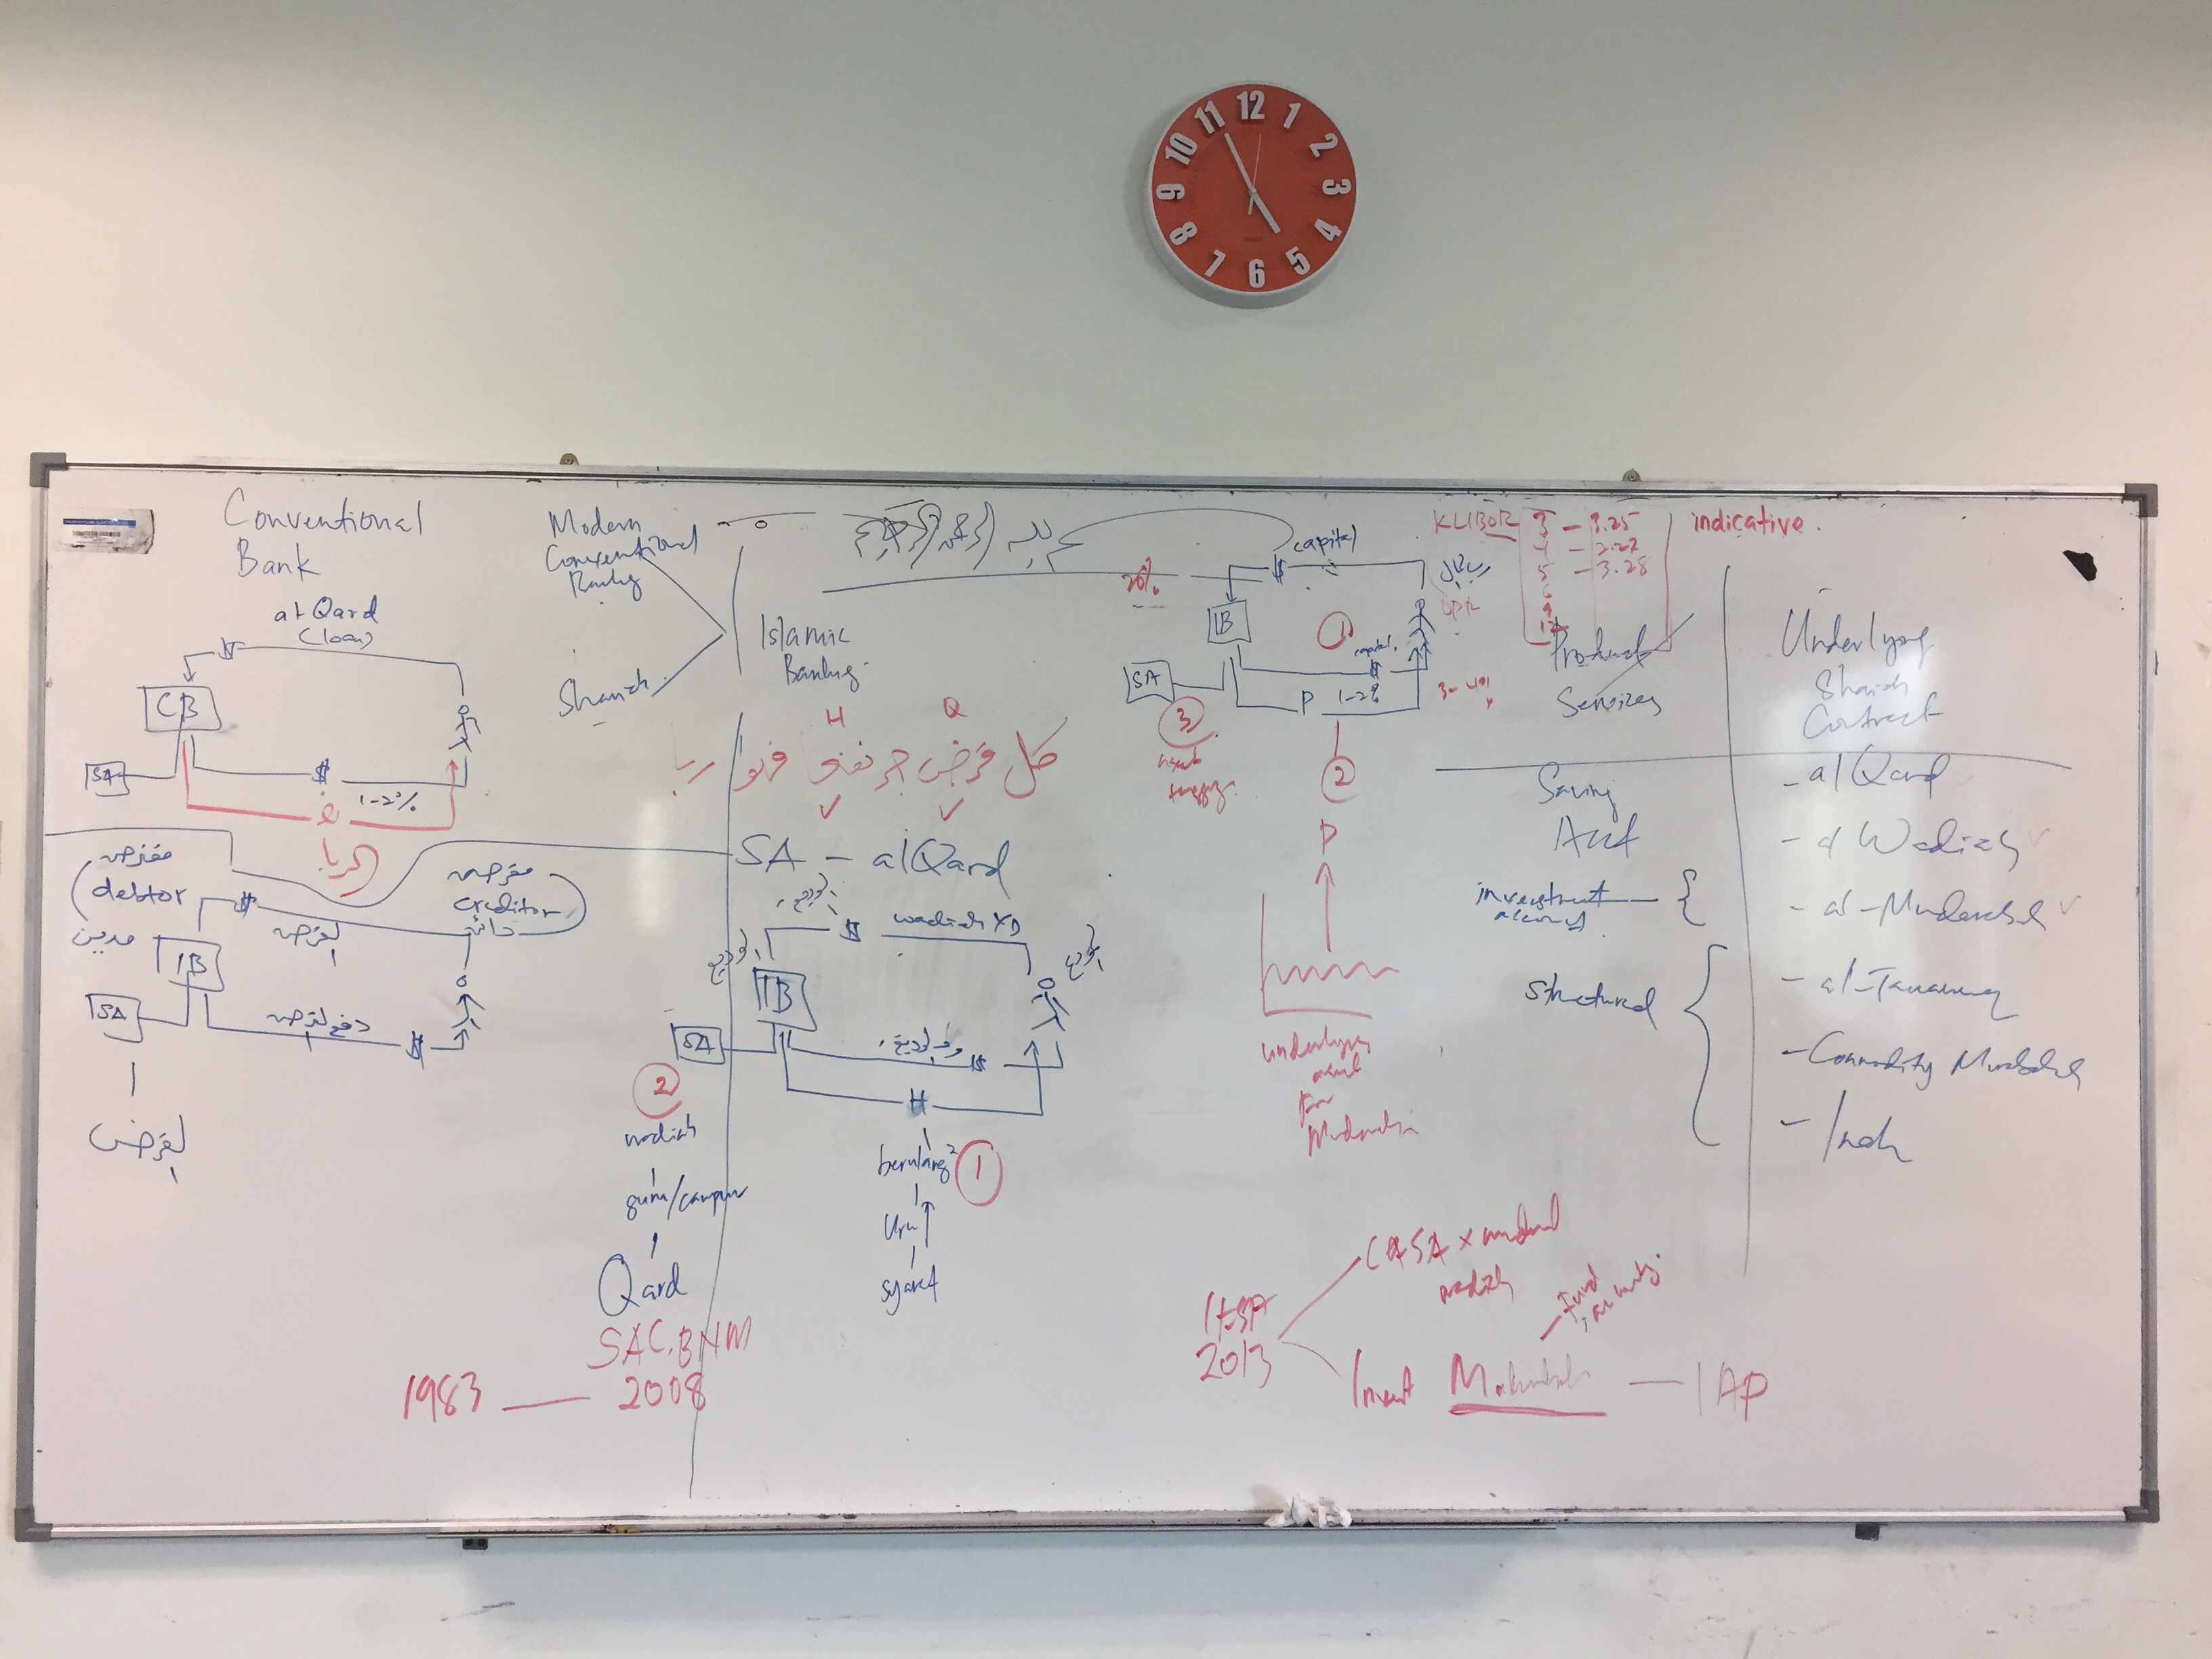 12
1
2
3
4
5
6
7
8
9
10
11
Conventional
Bank
al Qard
(loan)
$
CB
SA
$
1-2%
الربا
Modern
Conventional
Banking
Shariah
Islamic
Banking
H
Q
كل قرض جر نفع فهو ربا
مقترض
(debtor
مدين
مقرض
creditor)
دائن
$
القرض
IB
SA
دفع القرض
$
القرض
SA - al Qard
$
wadiah YD
IB
SA
$
H
2
wadiah
guna/campur
Qard
SAC.BNM
1983 — 2008
berulang2
1
Uruf
syarat
20%
$
capital
IB
SA
1
capital
$
P 1-2%
3-4%
3
2
P
underlying
asset
for
Mudarabah
KLIBOR
3 - 3.25
4 - 3.27
5 - 3.28
6
9
12
indicative.
OPR
Product
Services
Underlying
Shariah
Contract
Saving
Acct
investment
account
structured
- al Qard
- al Wadiah
- al-Mudarabah
- al-Tawarruq
- Commodity Murabahah
IFSA
2013
CASA x mudarabah
wadiah
fund
Invest Mudarabah — IAP